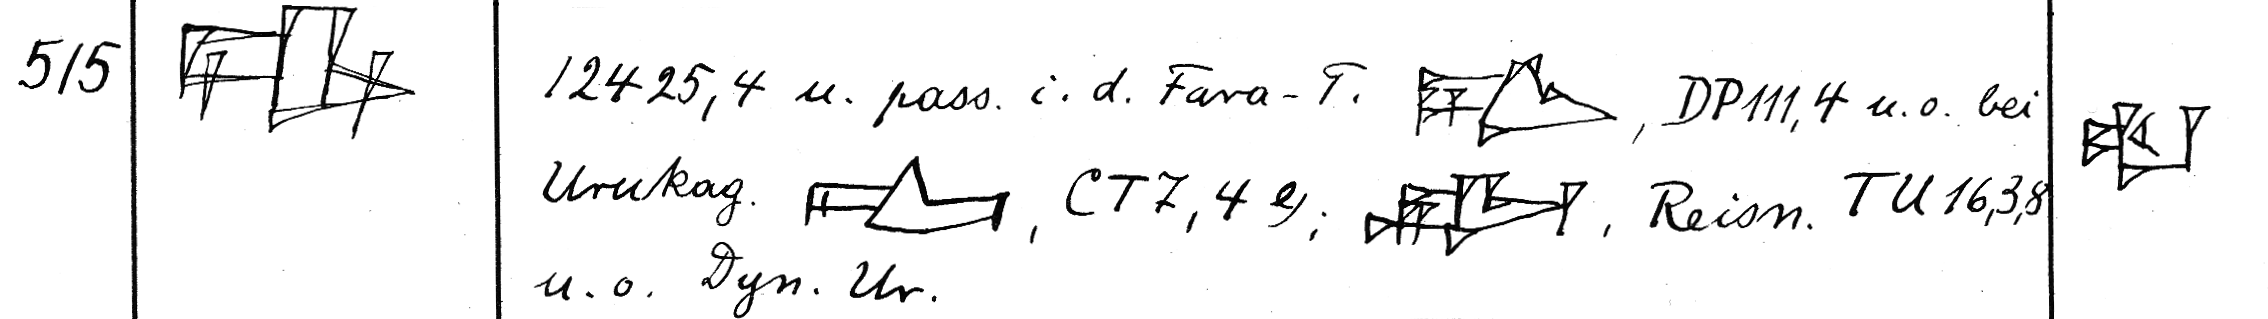 515 12425,4 u. pass. i. d. Fara-T. , DP 111,4 u. o. bei
Urukag. , CT 7, 4 ; , Reisn. TU 16,3,8
u. o. Dyn. Ur.